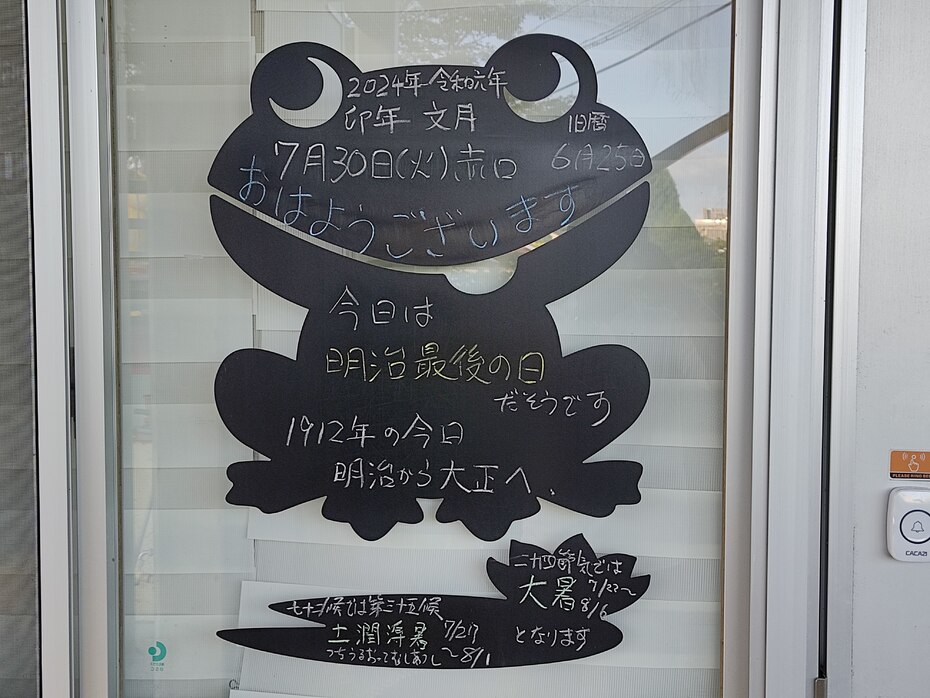 2024年 令和六年
卯年 文月
旧暦
7月30日(火)赤口
6月25日
おはようございます
今日は
明治最後の日
だそうです
1912年の今日
明治から大正へ.
二十四節気では
大暑 7/22〜
8/6
となります
七十二候では第三十五候
土潤溽暑 7/27
つちうるおってむしあつし 〜8/1
PLEASE RING BE
CACAZI